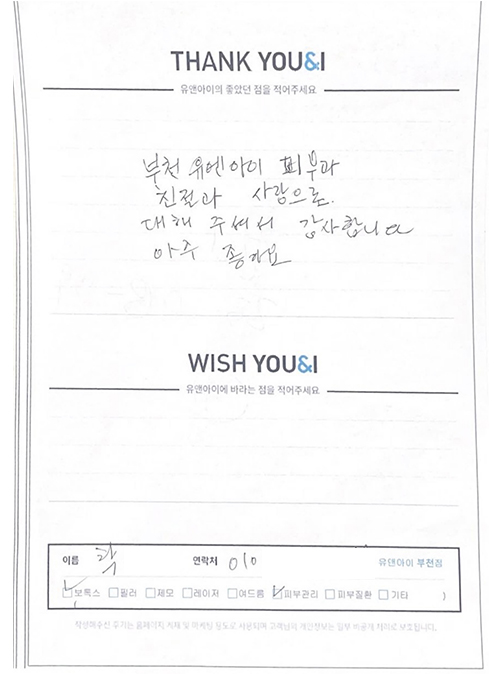 THANK YOU&I
유앤아이의 좋았던 점을 적어주세요
부천 유엔아이 피부과
친절과 사람으로
대해 주셔서 감사합니다
아주 좋아요
WISH YOU&I
유앤아이에 바라는 점을 적어주세요
이름 연락처 010 유앤아이 부천점
보톡스 필러 제모 레이저 여드름 피부관리 피부질환 기타 )
작성해주신 후기는 홈페이지 게재 및 마케팅 용도로 사용되며 고객님의 개인정보는 일부 비공개 처리로 보호됩니다.